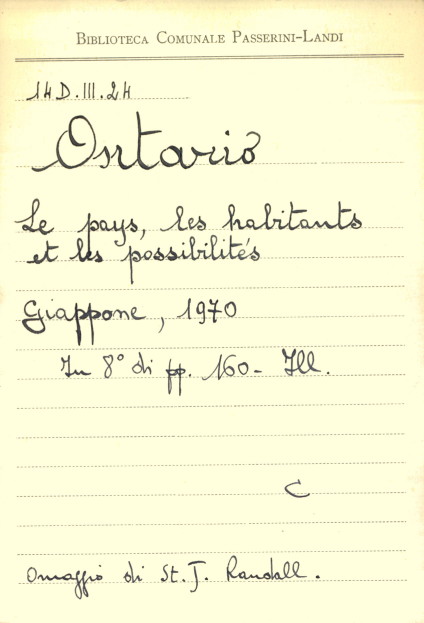 BIBLIOTECA COMUNALE PASSERINI-LANDI
14 D.III.24
Ontario
Le pays, les habitants
et les possibilités
Giappone, 1970
In 8° di pp. 160- Ill.
C
Omaggio di St. J. Randall.